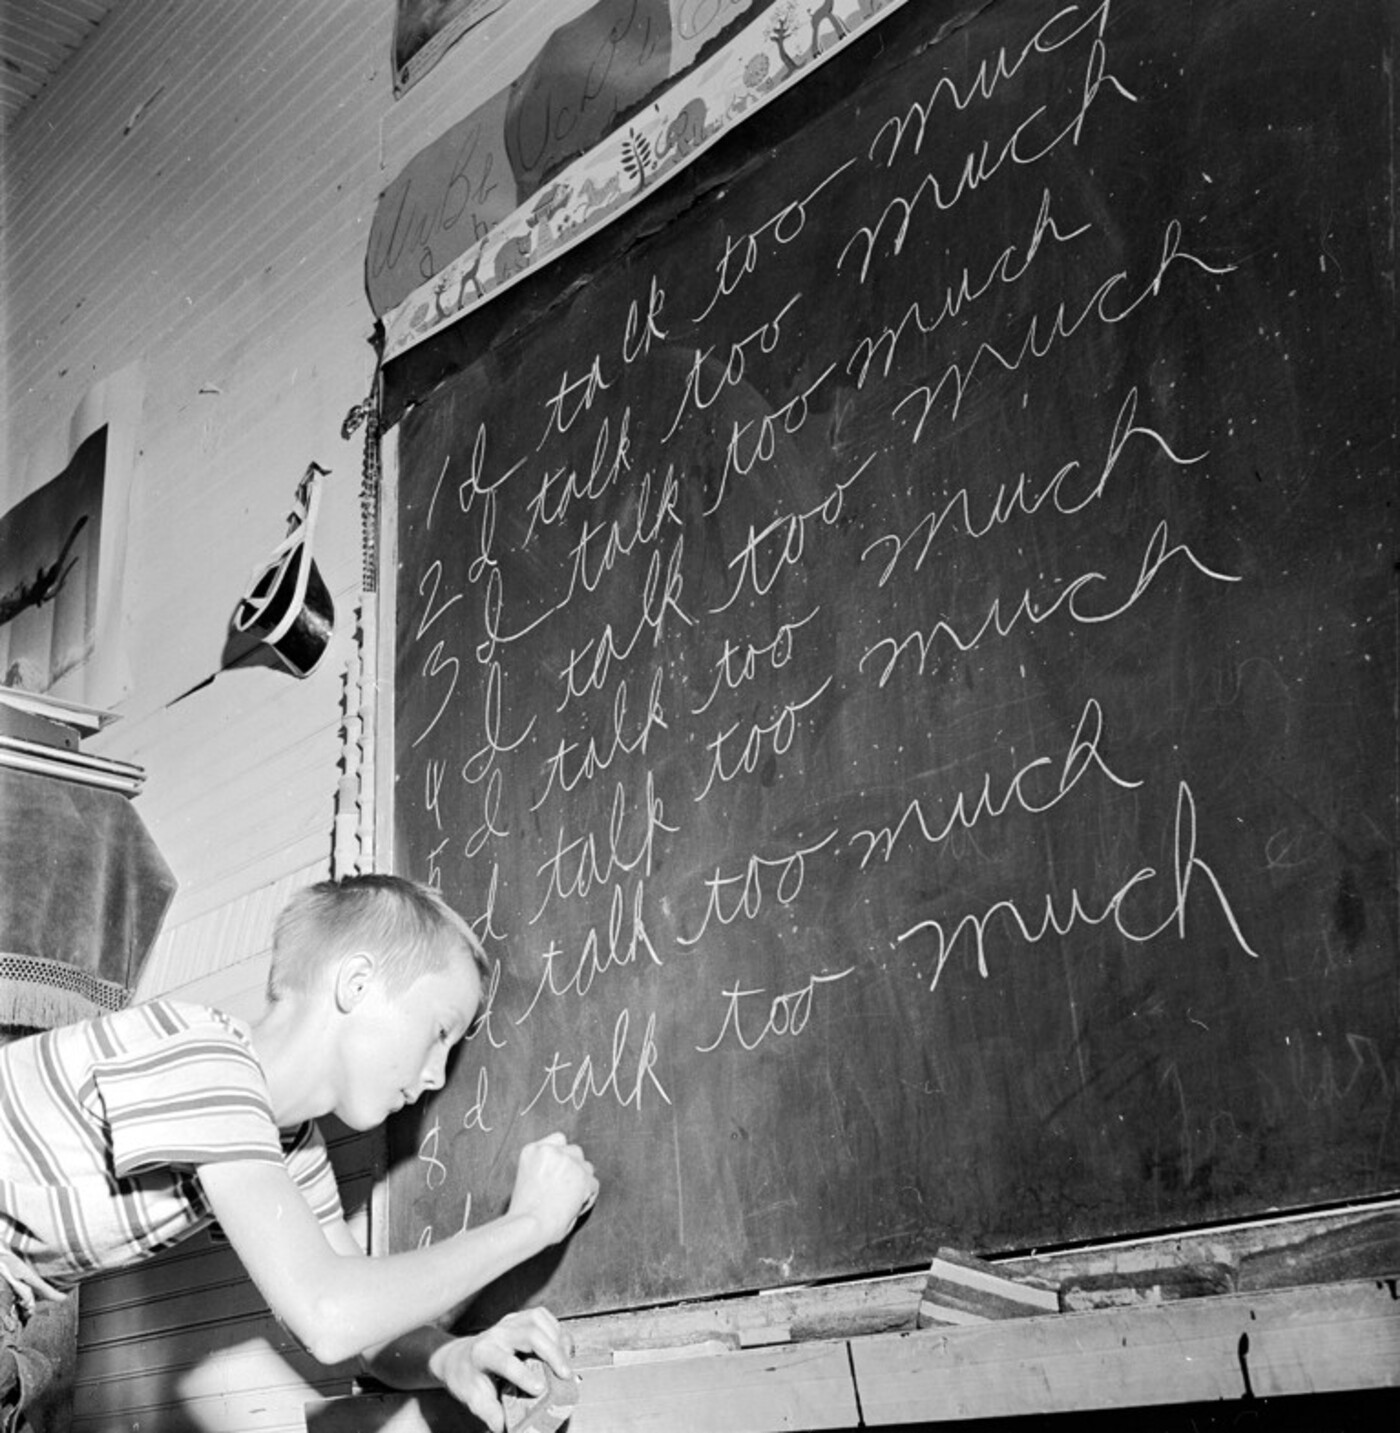 Aa Bb
1 I talk too much
2 I talk too much
3 I talk too much
4 I talk too much
5 I talk too much
I talk too much
I talk too much
8 I talk too much